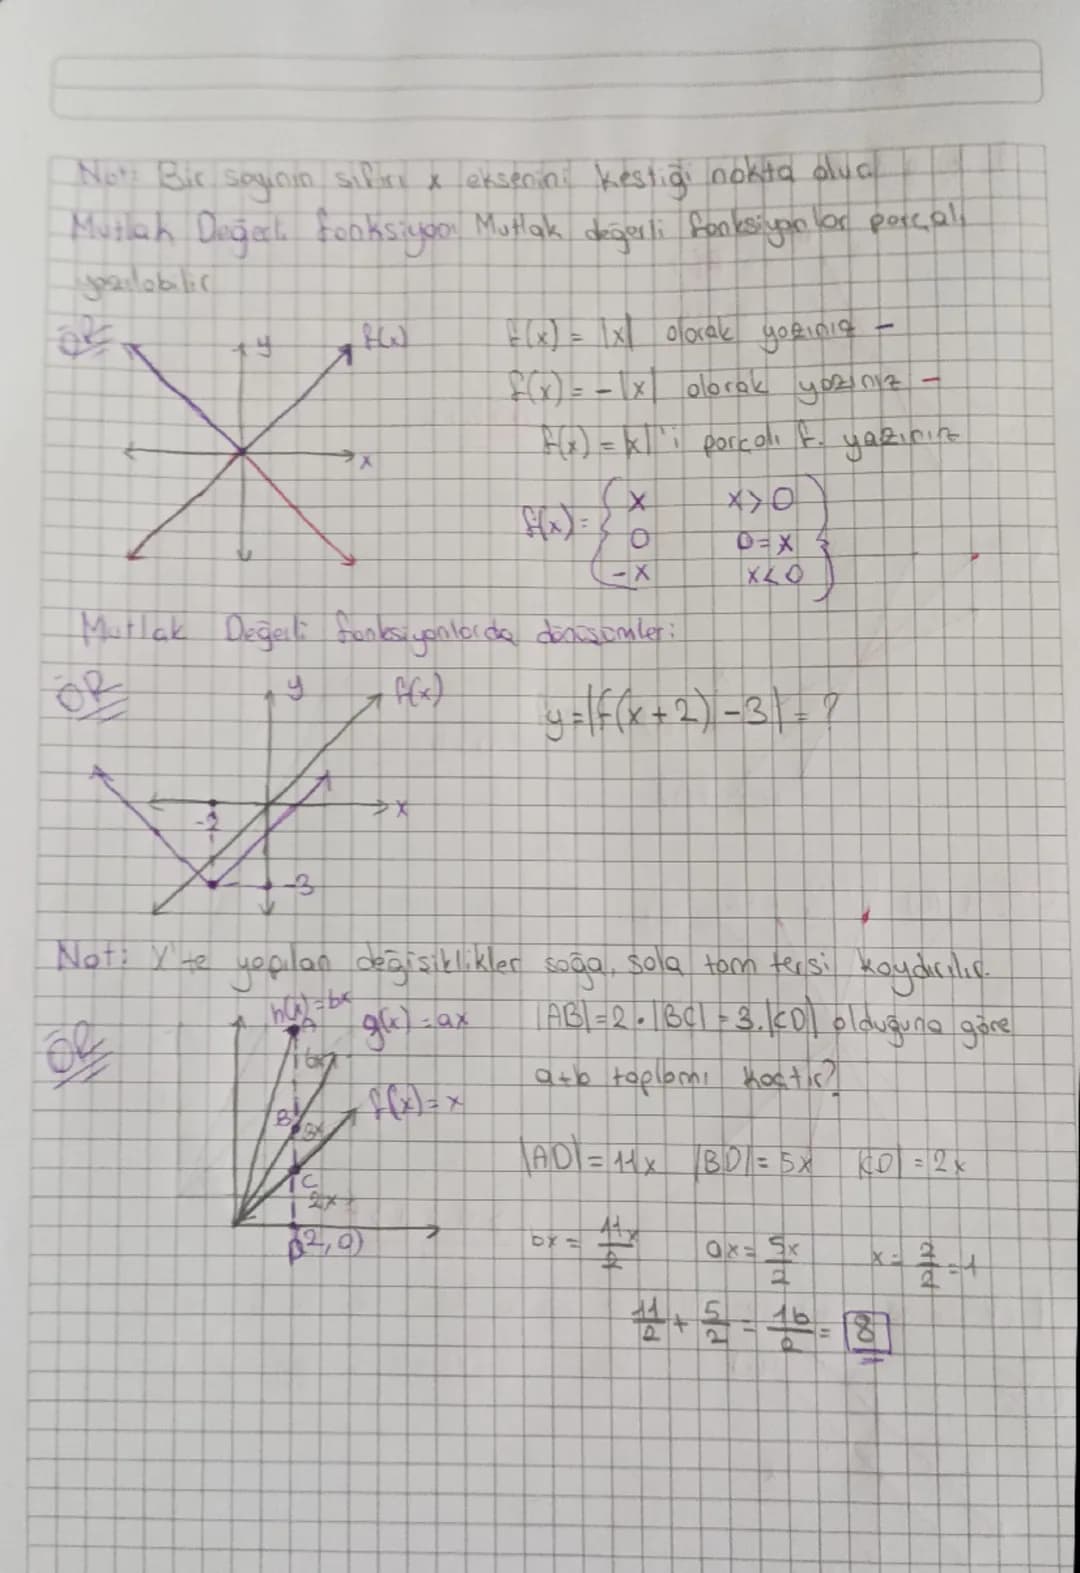 Not: Bir sayının sıfırı x eksenini kestiği nokta olur
Mutlak Değerli fonksiyon Mutlak değerli fonksiyonlar parçalı
yazılabilir
ÖR y f(x) x
f(x) = |x| olarak yazınız -
f(x) = -|x| olarak yazınız -
f(x) = |x|'i parçalı f. yazınız
f(x) = { x x>0
0 0=x
-x x<0 }
Mutlak Değerli fonksiyonlarda dönüşümler:
ÖR y f(x) x -2 -3
y = |f(x+2)| - 3| = ?
Not: X'te yapılan değişiklikler sağa, sola tam tersi kaydırılır.
ÖR h(x) = bx g(x) = ax f(x) = x
A 6x B 3x C 2x D(2,0)
|AB| = 2.|BC| = 3.|CD| olduğuna göre
a+b toplamı kaçtır?
|AD| = 11x |BD| = 5x |CD| = 2x
bx = 11x/2 ax = 5x/2 x = 2/2 = 1
11/2 + 5/2 = 16/2 = 8